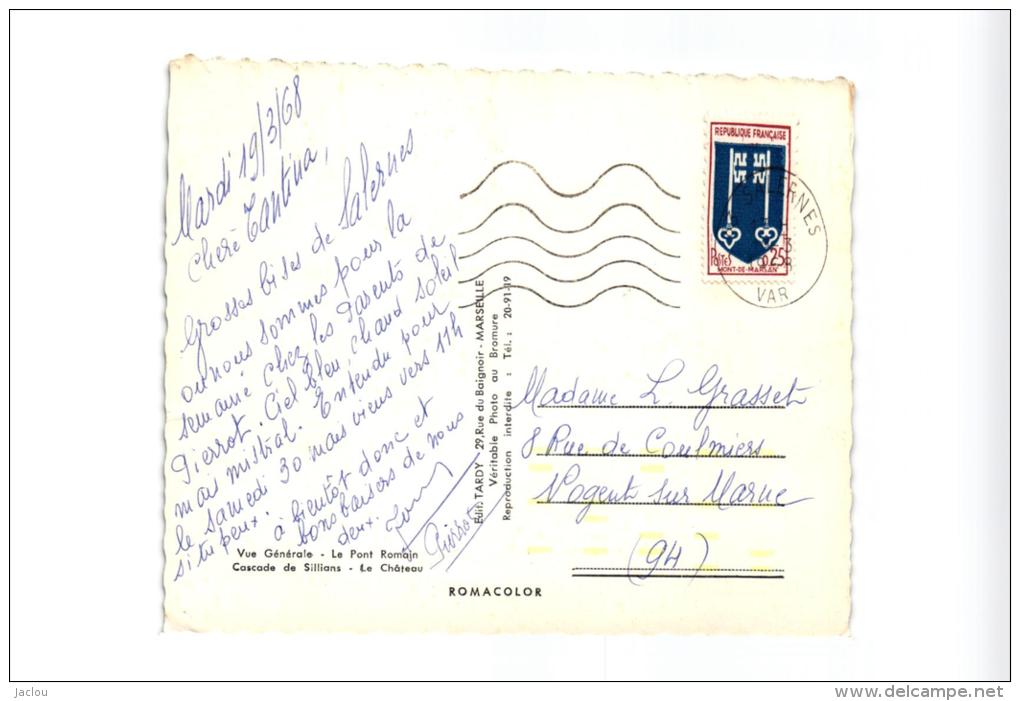 Mardi 19/3/68
Chère Tantina,
Grosses bises de Salernes
où nous sommes pour la
semaine chez les Parents de
Pierrot. Ciel bleu, chaud soleil
mais mistral. Entendu pour
le samedi 30 mais viens vers 11h
si tu peux.
à bientôt donc et
bons baisers de nous
deux.
Pierrot
Vue Générale - Le Pont Romain
Cascade de Sillians - Le Château
ROMACOLOR
Edit. TARDY - 29, Rue du Baignoir - MARSEILLE
Véritable Photo au Bromure
Reproduction interdite : Tél. : 20-91-19
REPUBLIQUE FRANÇAISE
POSTES 0,25F
MONT-DE-MARSAN
SALERNES
VAR
Madame L. Grasset
8 Rue de Coulmiers
Nogent sur Marne
(94)
Jaclou
http://www.delcampe.net